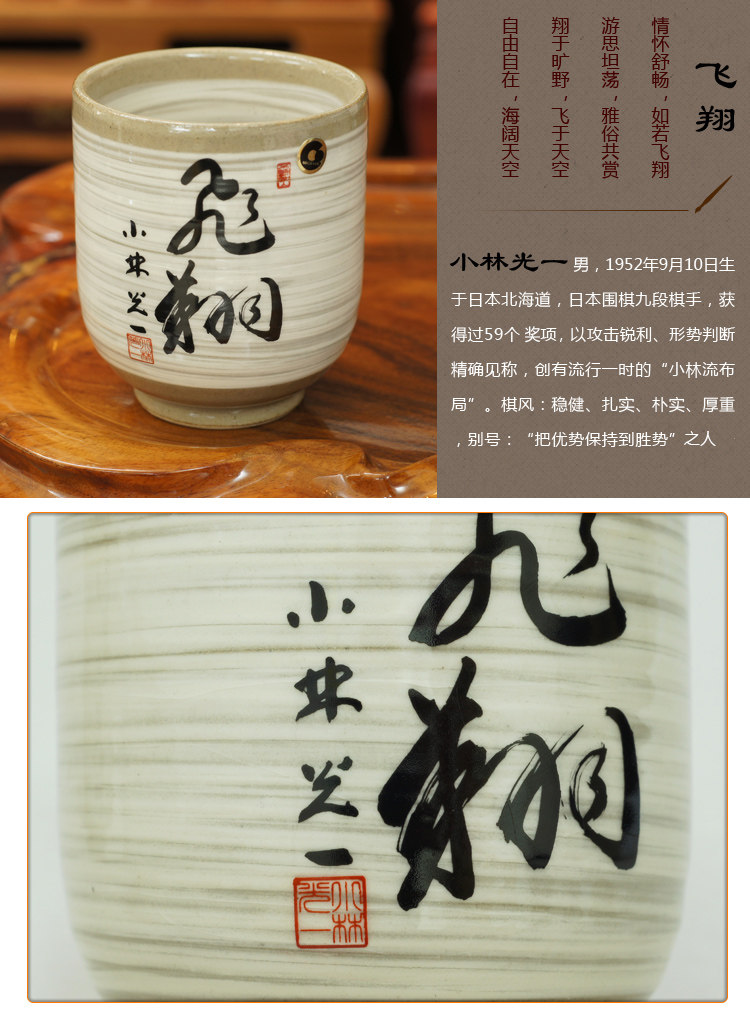 飛翔
小林光一
飞翔
情怀舒畅，如若飞翔
游思坦荡，雅俗共赏
翔于旷野，飞于天空
自由自在，海阔天空
小林光一 男，1952年9月10日生
于日本北海道，日本围棋九段棋手，获
得过59个 奖项, 以攻击锐利、形势判断
精确见称，创有流行一时的“小林流布
局”。棋风：稳健、扎实、朴实、厚重
，别号：“把优势保持到胜势”之人
飛翔
小林光一
小林光一